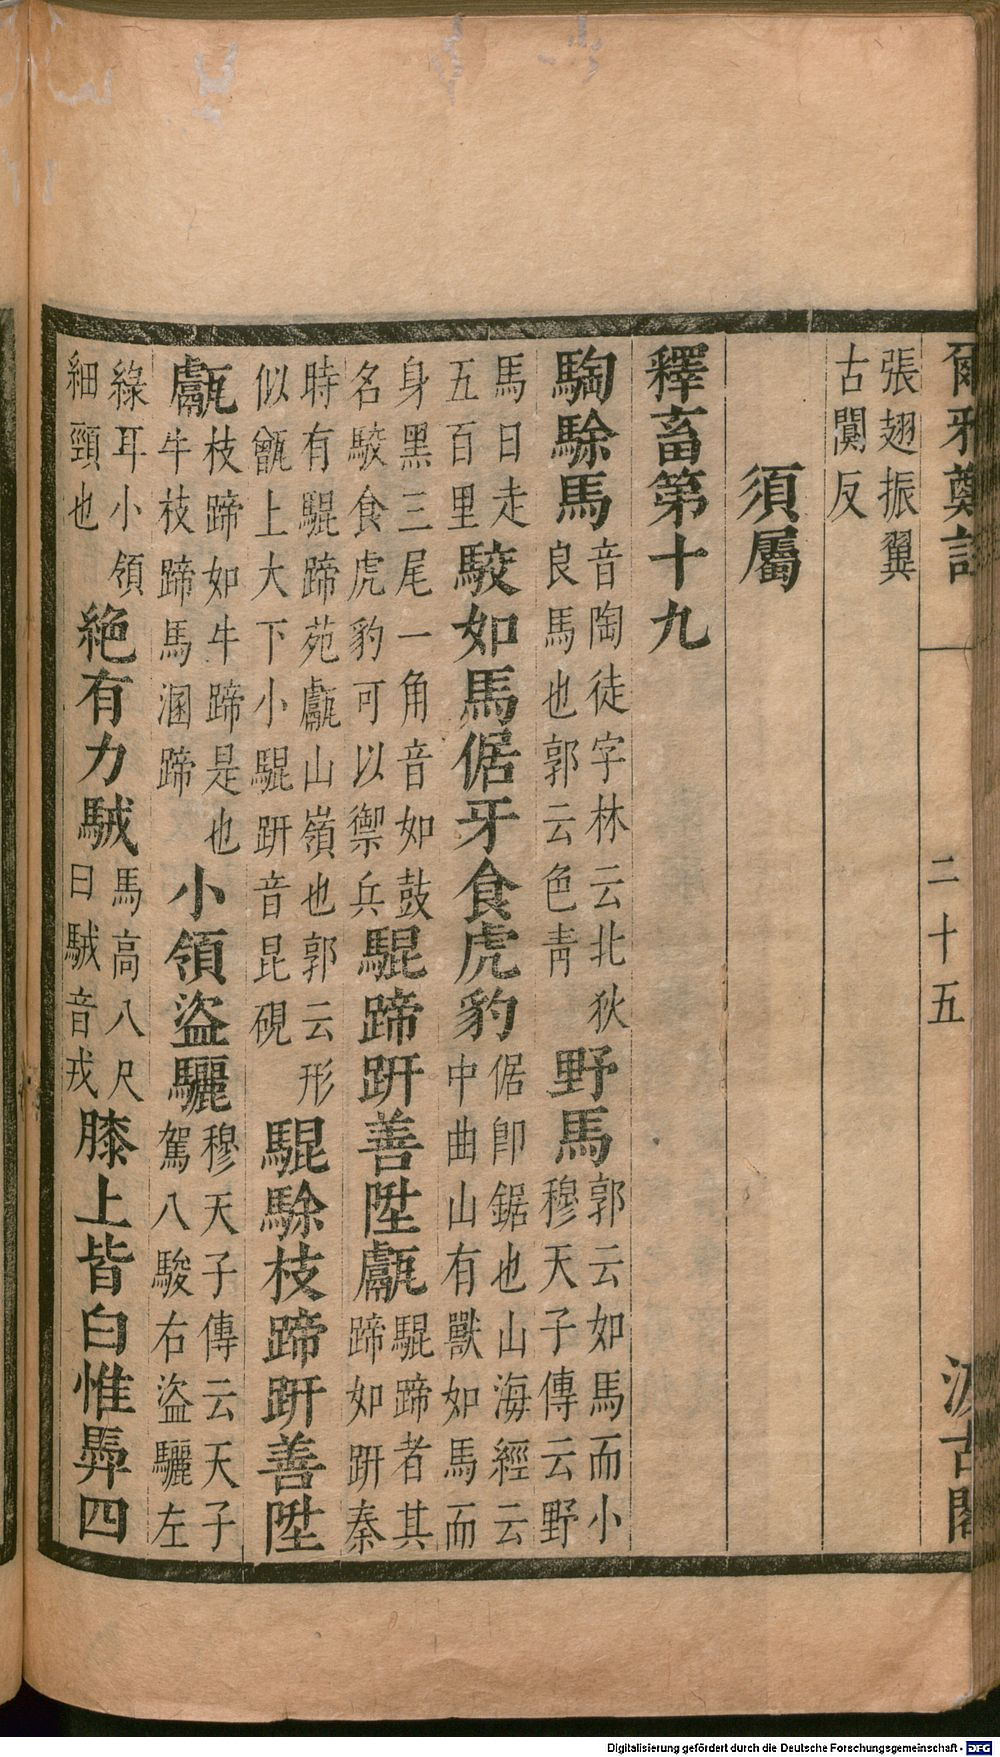 爾雅鄭註 二十五 汲古閣
張翅振翼古闃反
須屬
釋畜第十九
騊駼馬音陶徒字林云北狄良馬也郭云色青野馬郭云如馬而小穆天子傳云野
馬日走五百里駮如馬倨牙食虎豹倨卽鋸也山海經云中曲山有獸如馬而
身黑三尾一角音如鼓名駮食虎豹可以禦兵騉蹄趼善陞甗騉蹄者其蹄如趼秦
時有騉蹄苑甗山嶺也郭云形似甑上大下小騉趼音昆硯騉駼枝蹄趼善陞
甗枝蹄如牛蹄是也牛枝蹄馬溷蹄小領盜驪穆天子傳云天子駕八駿右盜驪左
綠耳小領細頸也絶有力駥馬高八尺曰駥音戎膝上皆白惟馵四
Digitalisierung gefördert durch die Deutsche Forschungsgemeinschaft - DFG